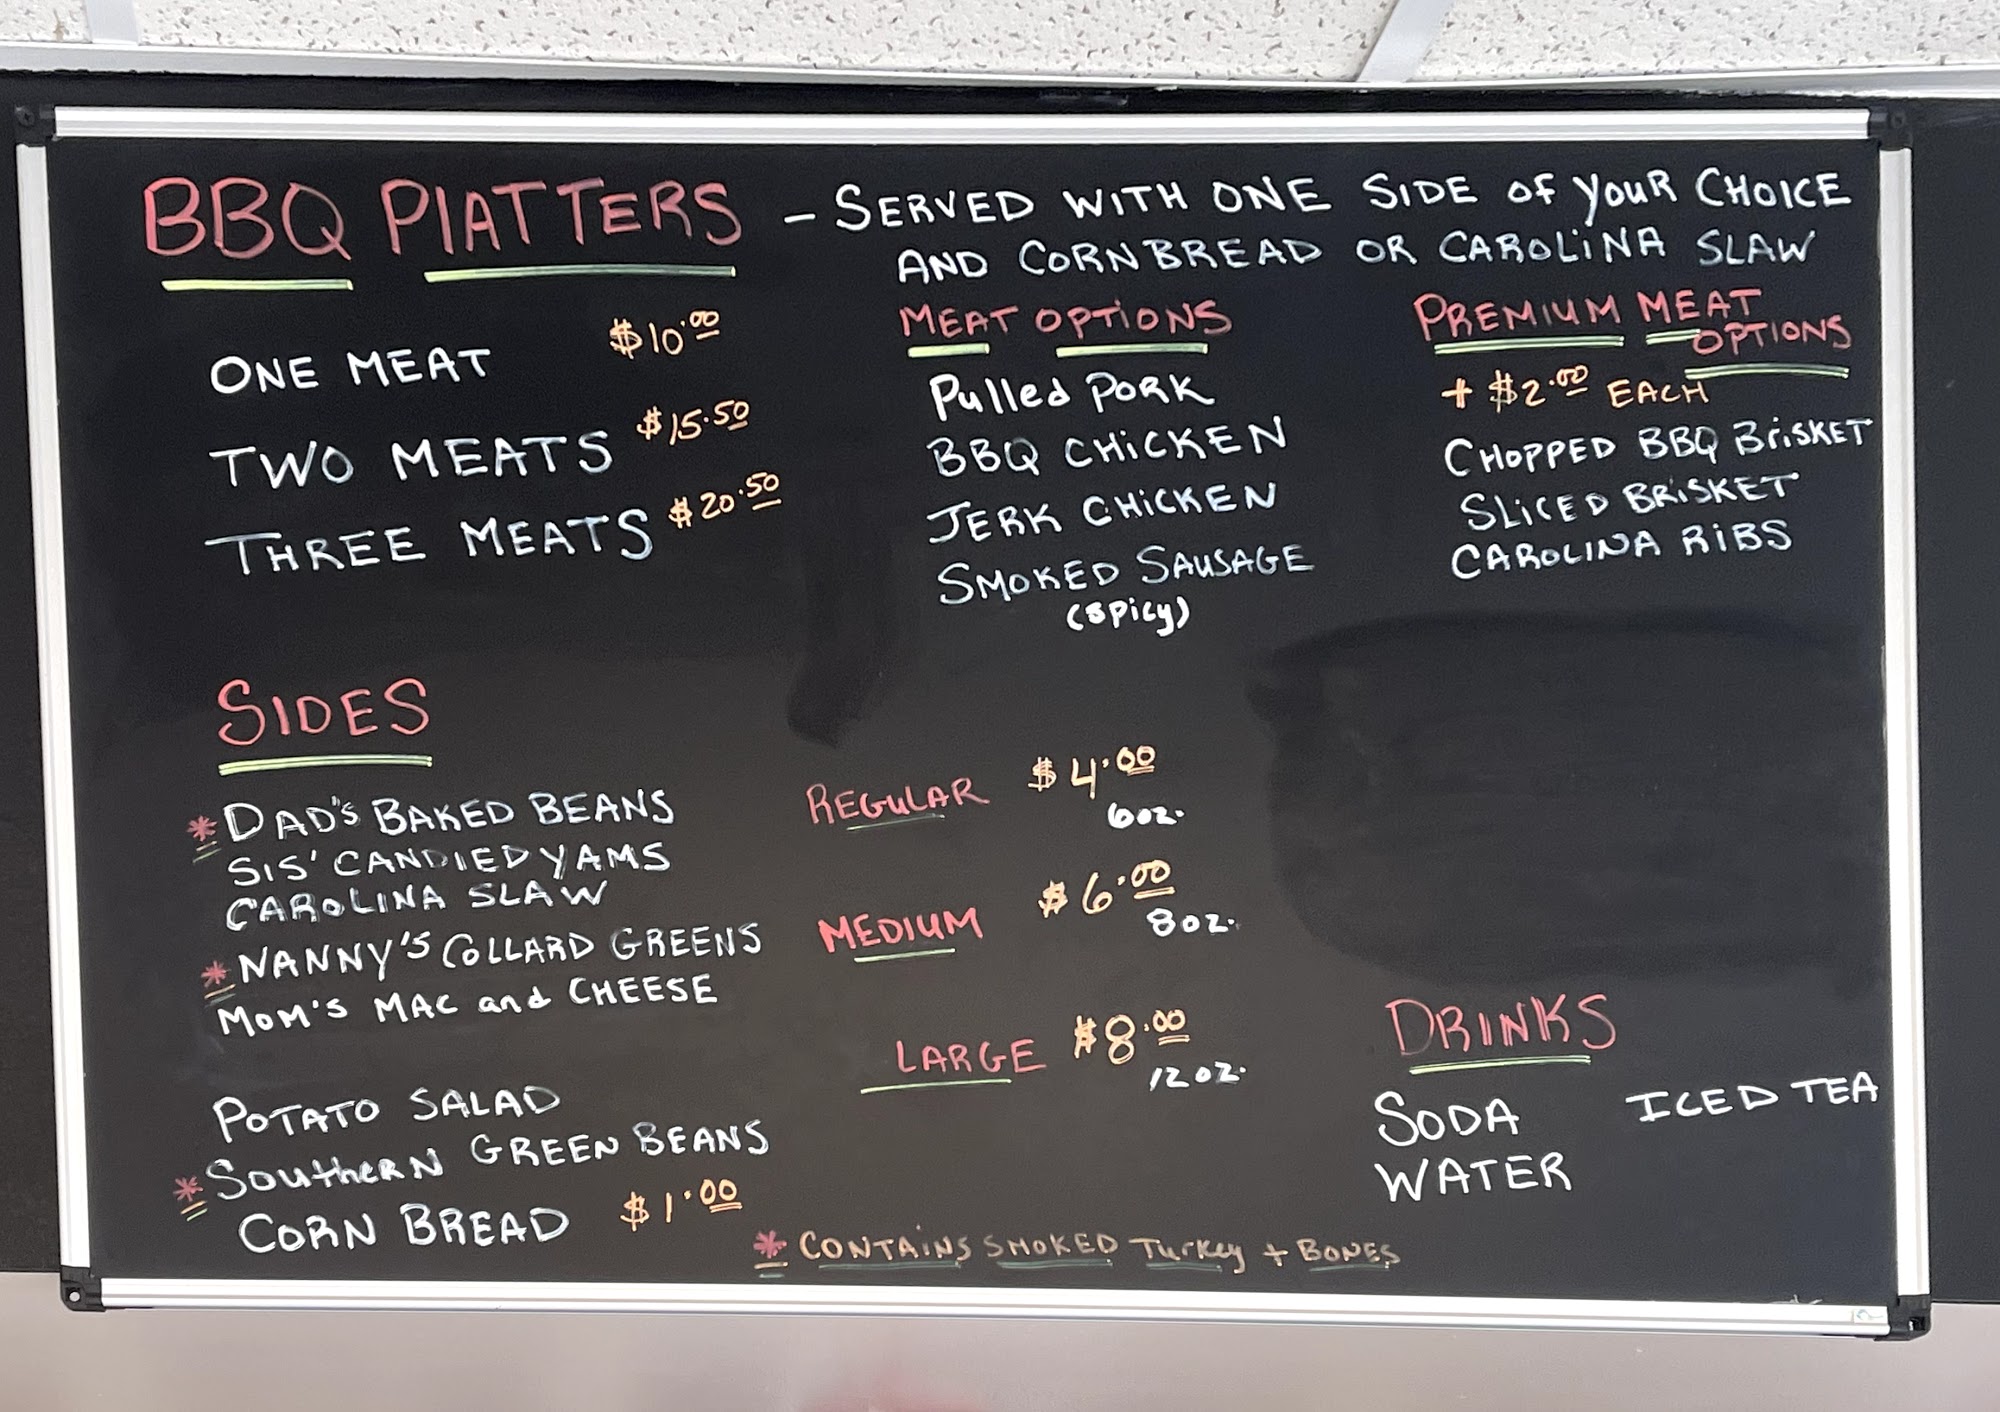 BBQ PLATTERS - SERVED WITH ONE SIDE OF YOUR CHOICE
AND CORNBREAD OR CAROLINA SLAW
ONE MEAT $10.00
TWO MEATS $15.50
THREE MEATS $20.50
MEAT OPTIONS
Pulled PORK
BBQ CHICKEN
JERK CHICKEN
SMOKED SAUSAGE
(spicy)
PREMIUM MEAT
OPTIONS
+ $2.00 EACH
CHOPPED BBQ BRISKET
SLICED BRISKET
CAROLINA RIBS
SIDES
*DAD'S BAKED BEANS
SIS' CANDIED YAMS
CAROLINA SLAW
*NANNY'S COLLARD GREENS
MOM'S MAC and CHEESE
POTATO SALAD
*SOUTHERN GREEN BEANS
CORN BREAD $1.00
REGULAR $4.00
6oz.
MEDIUM $6.00
8oz.
LARGE $8.00
12oz.
DRINKS
SODA ICED TEA
WATER
* CONTAINS SMOKED Turkey + BONES